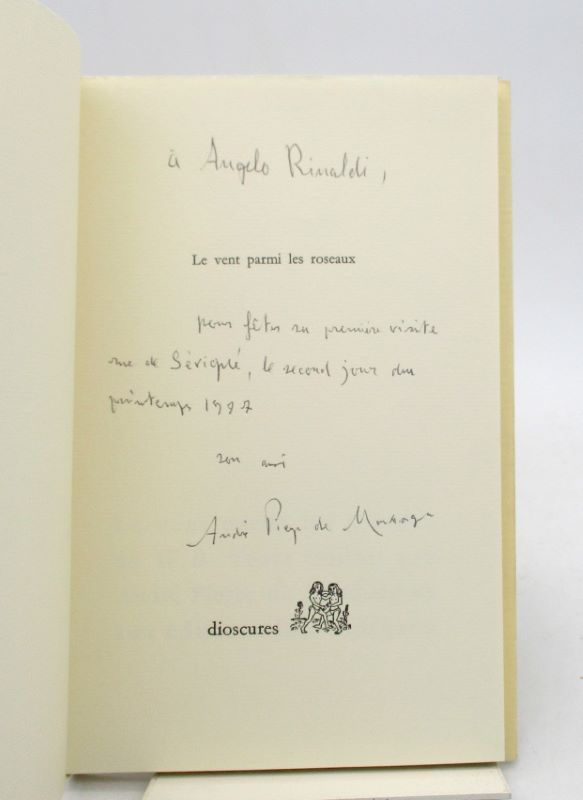 à Angelo Rinaldi,
Le vent parmi les roseaux
pour fêter sa première visite
rue de Sévigné, le second jour du
printemps 1997
son ami
André Pieyre de Mandiargues
dioscures